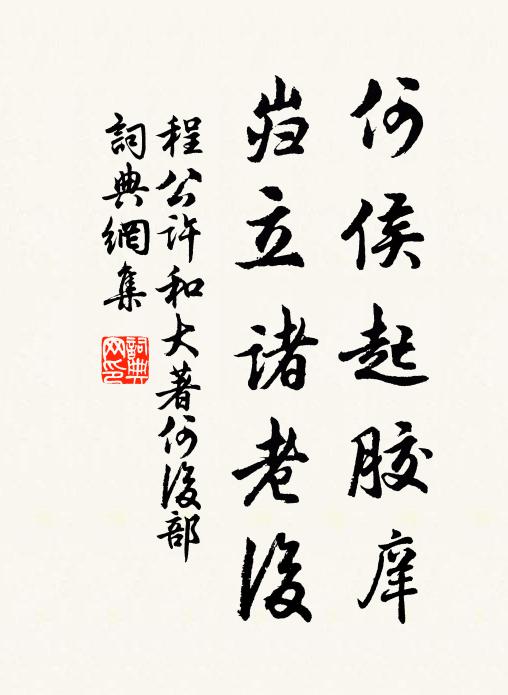 何侯起胶庠
岿立诸老後
程公许和大著何後部
詞典網集
詞典
网印